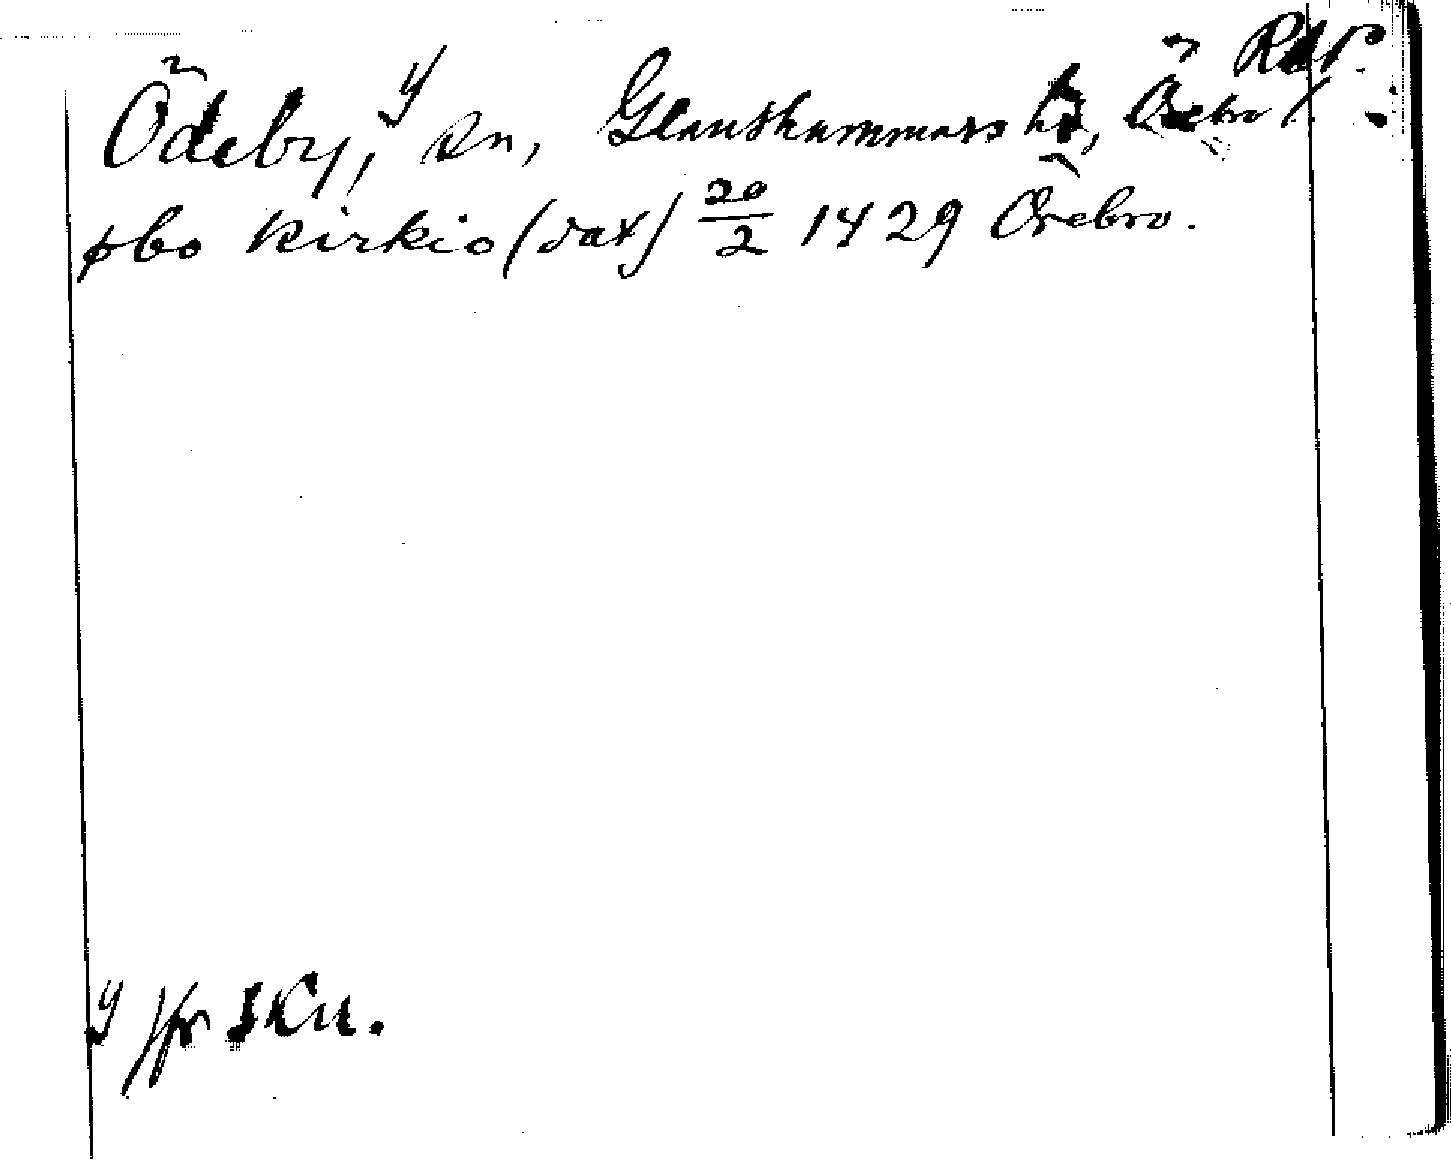 RAP.
Ödeby, y sn, Glanshammars hd, Örebro l.
øbo kirkio (dat) 20/2 1429 Örebro.
y Jfr